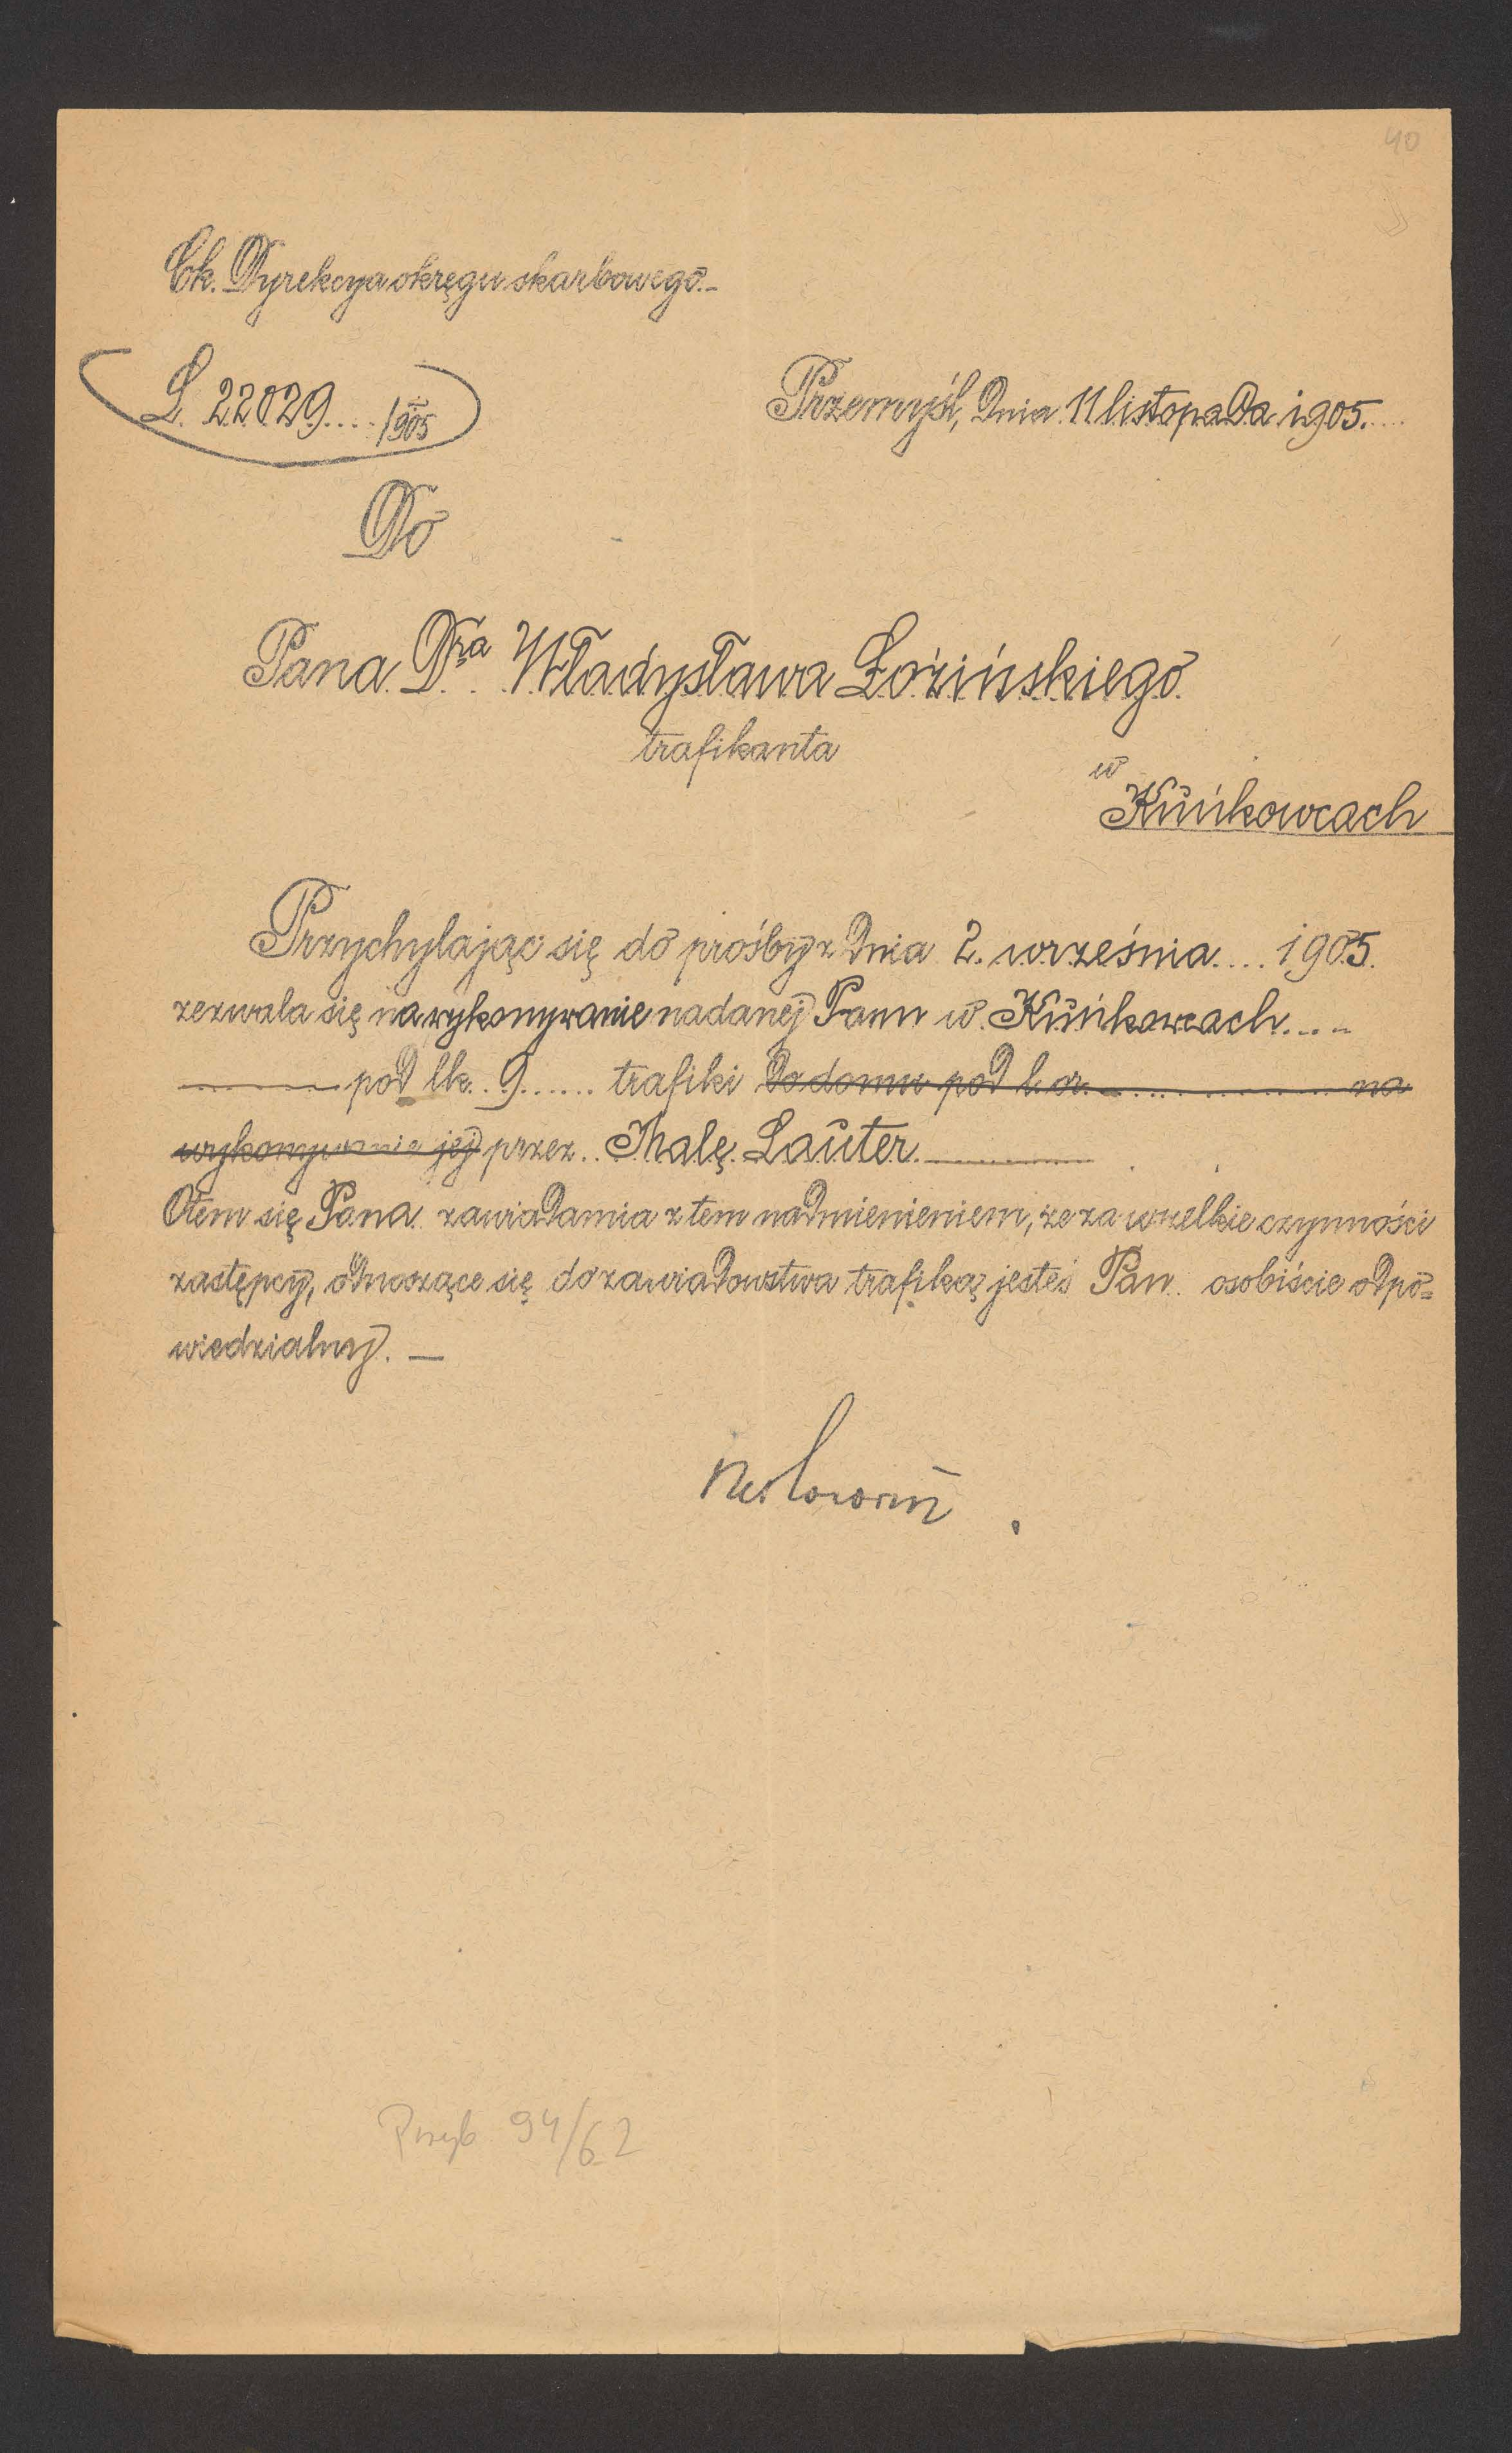 40
Ck. Dyrekcya okręgu skarbowego.-
L. 22029..../905
Przemyśl, dnia 11 listopada 1905.....
Do
Pana Dra Władysława Łozińskiego
trafikanta
w
Kuńkowcach
Przychylając się do prośby z dnia 2. września.... 1905.
zezwala się na wykonywanie nadanej Panu w Kuńkowcach....
pod lk. 9...... trafiki do domu pod l. or. na
wykonywanie jej przez.. Malę Lauter.
Otem się Pana zawiadamia z tem nadmienieniem, że za wszelkie czynności
zastępcy, odnoszące się do zawiadowstwa trafiką jesteś Pan osobiście odpo=
wiedzialny. —
Przyb 94/62